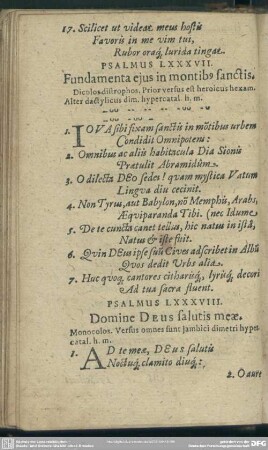 17. Scilicet ut videat meus hostis
Favoris in me vim tui,
Rubor oraq́; lurida tingat.
PSALMUS LXXXVII.
Fundamenta ejus in montibꝰ sanctis.
Dicolos distrophos. Prior versus est heroicus hexam.
Alter dactylicus dim. hypercatal. h. m.
1. IOVA sibi fixam sanctis in mōtibus urbem
Condidit Omnipotens:
2. Omnibus ac aliis habitacula Dia Sionis
Prætulit Abramidûm.
3. O dilecta DEO sedes! quam mystica Vatum
Lingva diu cecinit.
4. Non Tyrus, aut Babylon, nō Memphis, Arabs,
Æquiparanda Tibi. (nec Idume
5. De te cuncta canet tellus, hic natus in istâ,
Natus & iste fuit.
6. Qvin DEus ipse suũ Cives adscribet in Albũ
Qvos dedit Urbs alia.
7. Huc qvoq́; cantores citharæq́;, lyræq́; decori
Ad tua sacra fluent.
PSALMUS LXXXVIII.
Domine DEUS salutis meæ.
Monocolos. Versus omnes sunt jambici dimetri hyper
catal. h. m.
1. AD te meæ, DEus salutis
Noctuq́; clamito diuq́;:
2. O aure